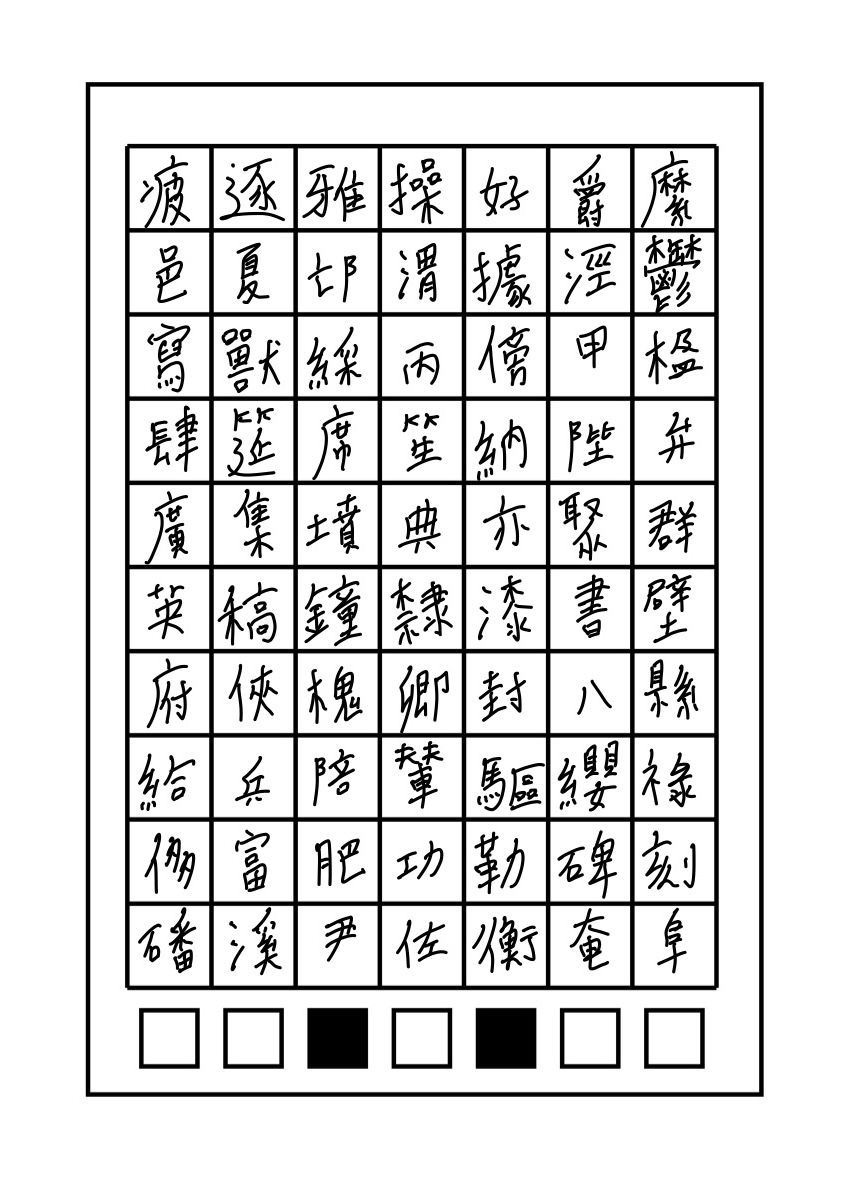 疲逐雅操好爵縻
邑夏邙渭據涇鬱
寫獸綵丙傍甲楹
肆筵席笙納陛弁
廣集墳典亦聚群
英稿鐘隷漆書壁
府俠槐卿封八縣
給兵陪輦驅纓祿
侈富肥功勒碑刻
磻溪尹佐衡奄阜